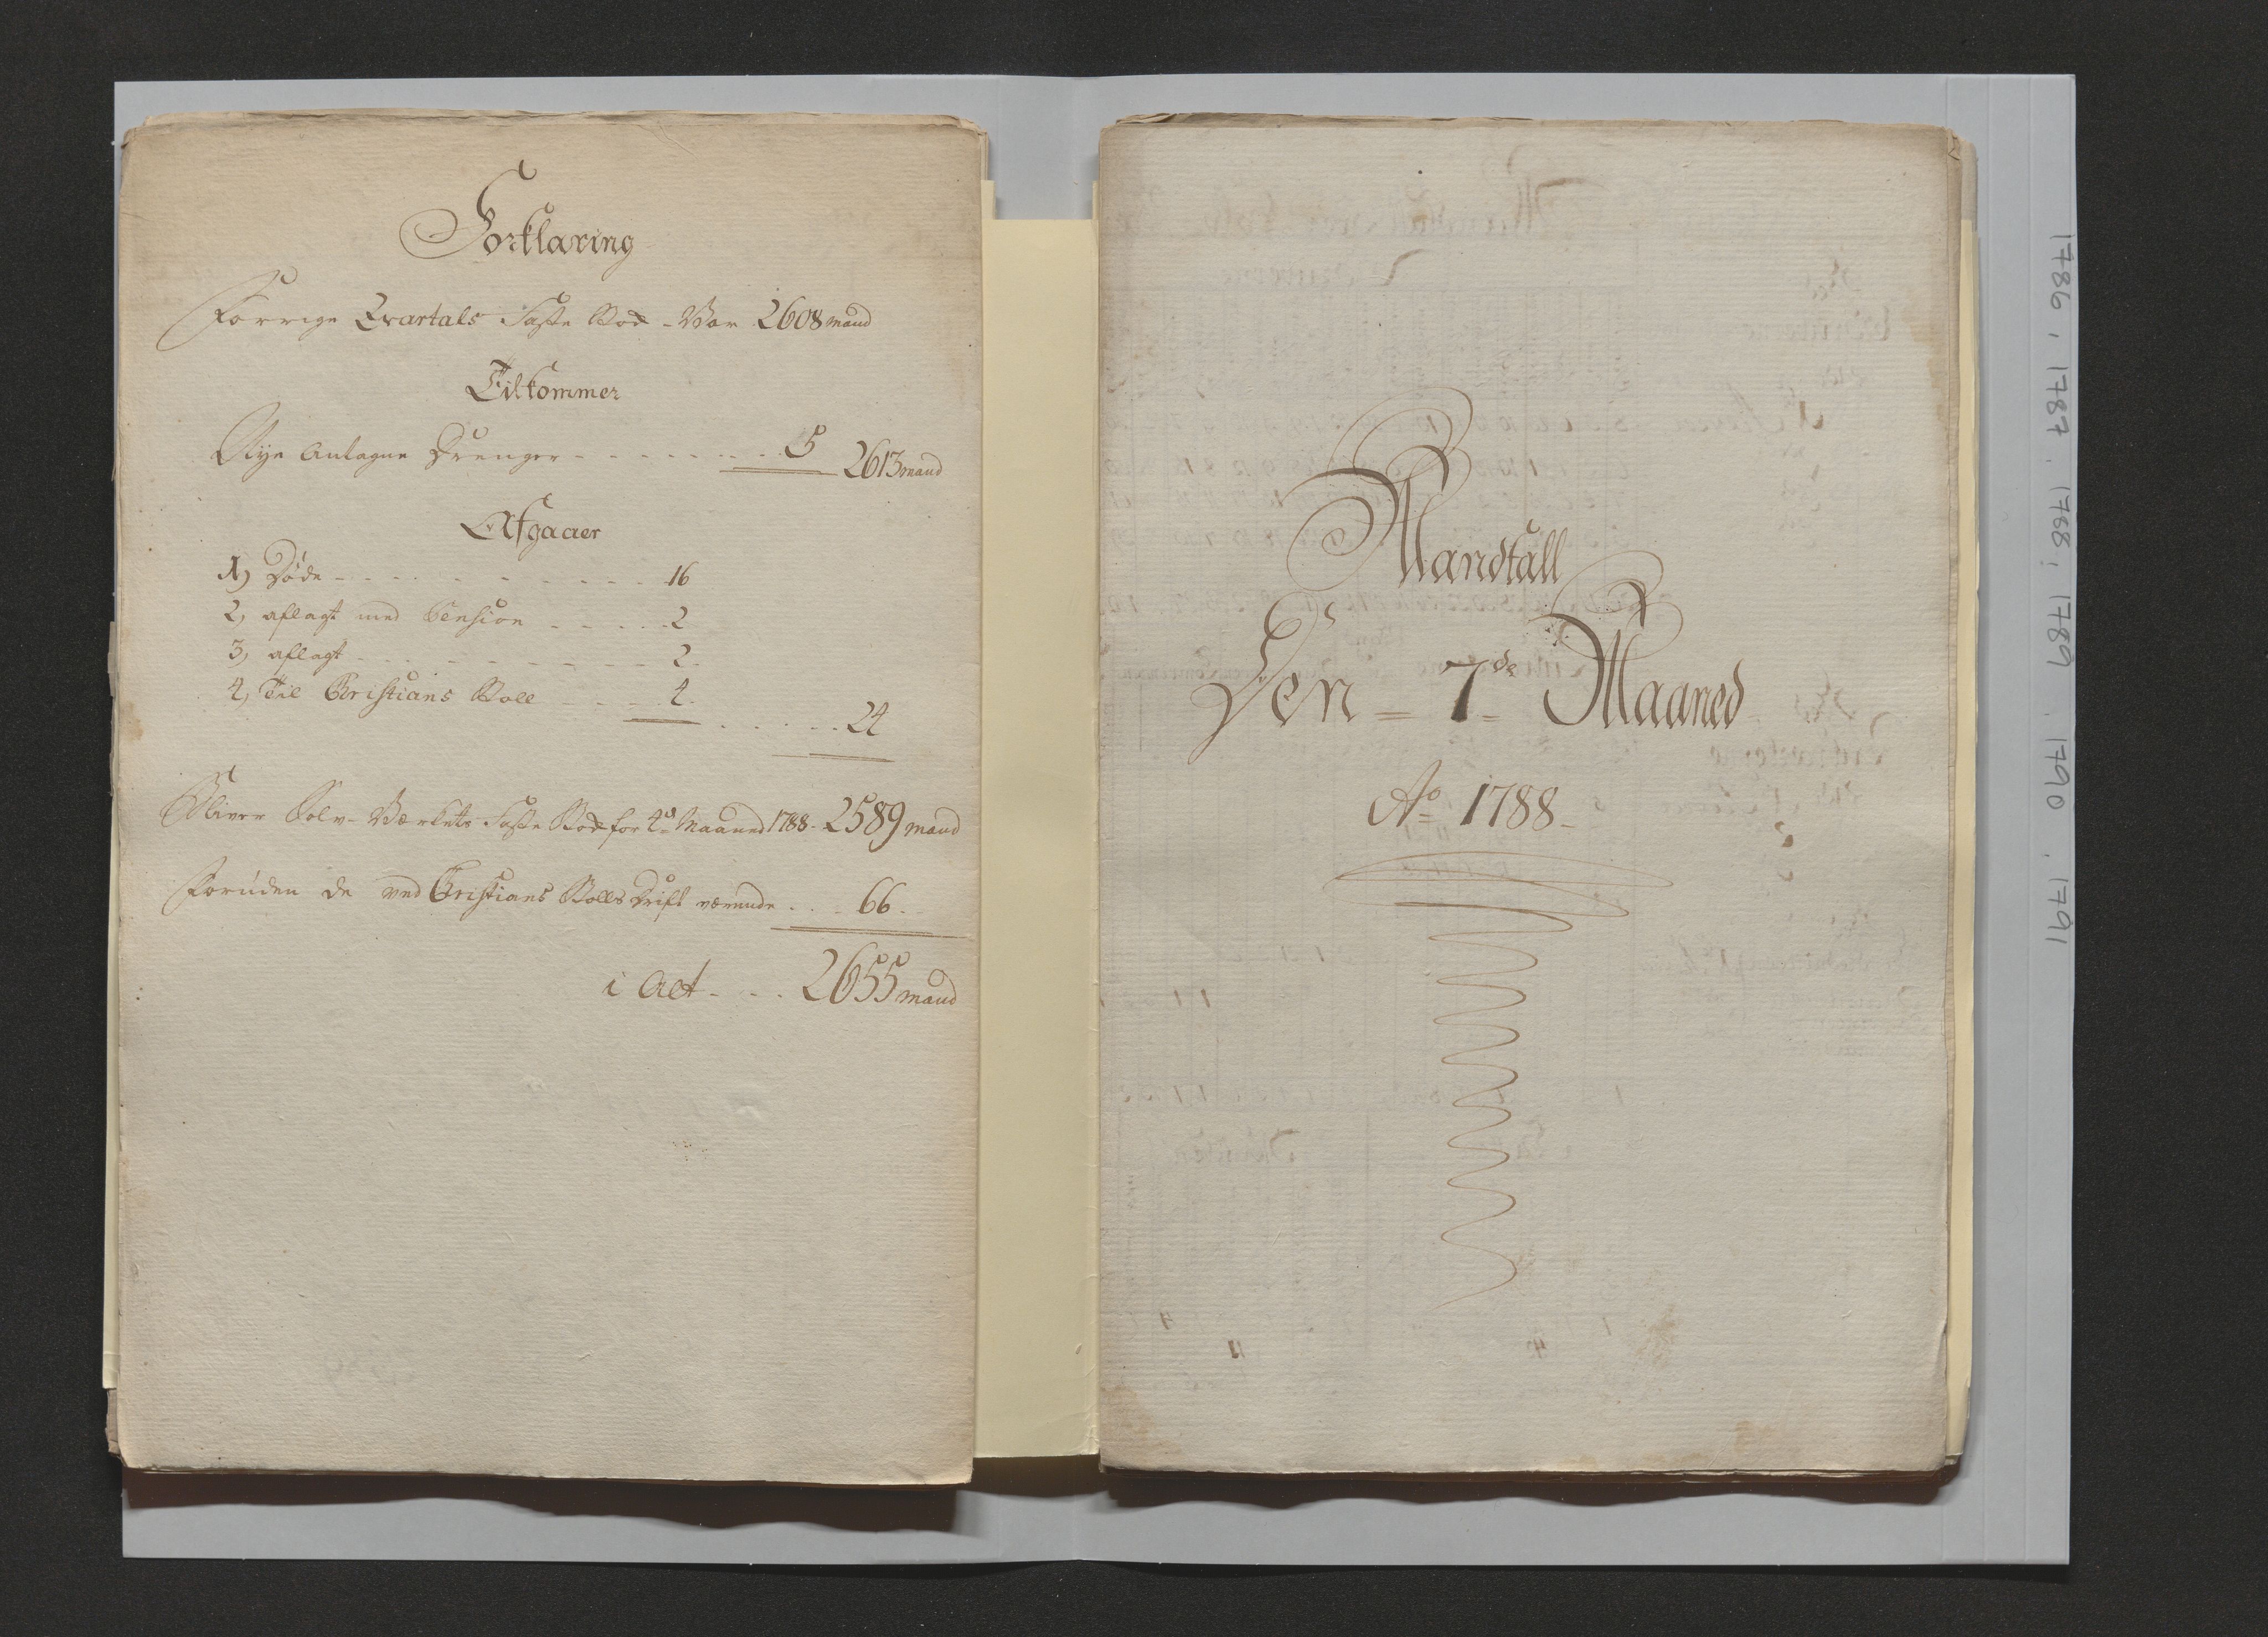 Forklaring
Forrige Qvartals Faste Rode Var 2608 mand
Tilkommer
Nye Antagne Drenger - - - - - - - - 5 2613 mand
Afgaaer
1) Døde - - - - - - - - - - - 16
2, aflagt med Pension - - - - - 2
3, aflagt - - - - - - - - - - - 2
4, Til Christians Koll - - - - 4
- - - - - 24
Bliver Sølv-Værkets Faste Rode for 4d Maaned 1788 - 2589 mand
Foruden de ved Christians Kolls Drift værende - - - 66
i Alt - - - 2655 mand
Mandtall
Den = 7de Maaned
Ao 1788
1786, 1787, 1788, 1789, 1790, 1791